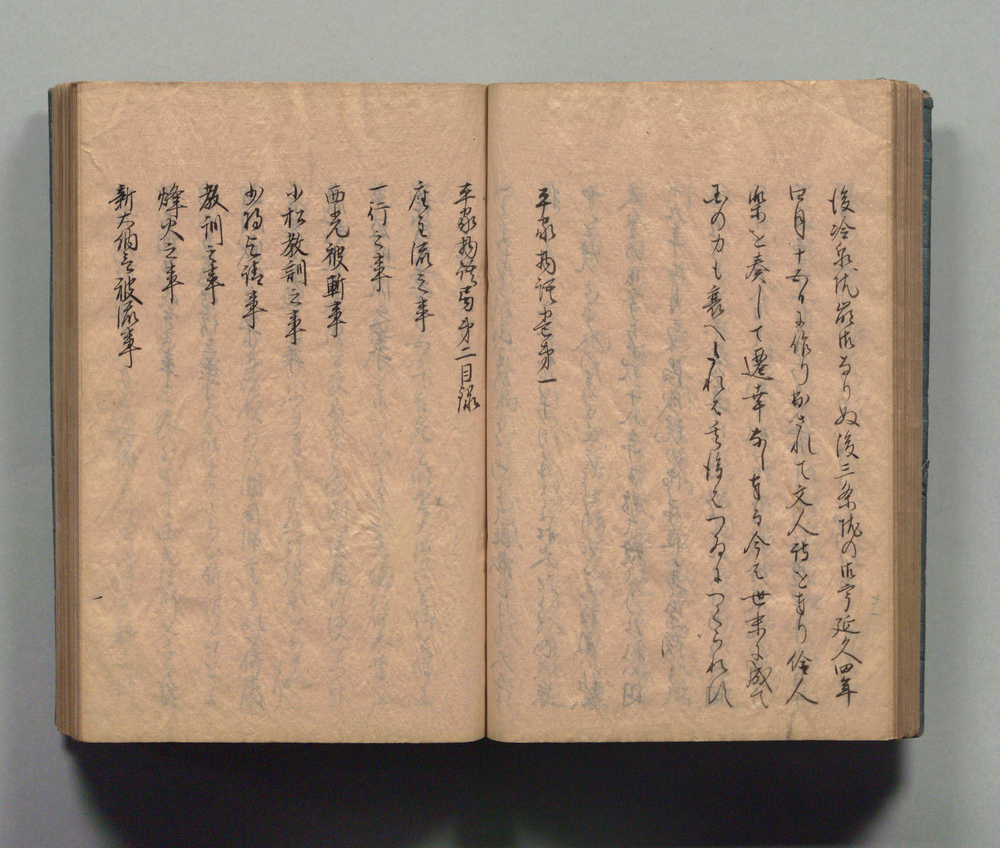 後冷泉院崩御なりぬ後三条院の御宇延久四年
四月十五日に作り出されて文人詩をたてまつり伶人
楽を奏して遷幸なし奉る今は世末に成て
国の力も衰へたれは其後はつゐにつくられす
平家物語巻第一
平家物語巻第二目録
座主流之事
一行之事
西光被斬事
小松教訓之事
少将乞請事
教訓之事
烽火之事
新大納言被流事